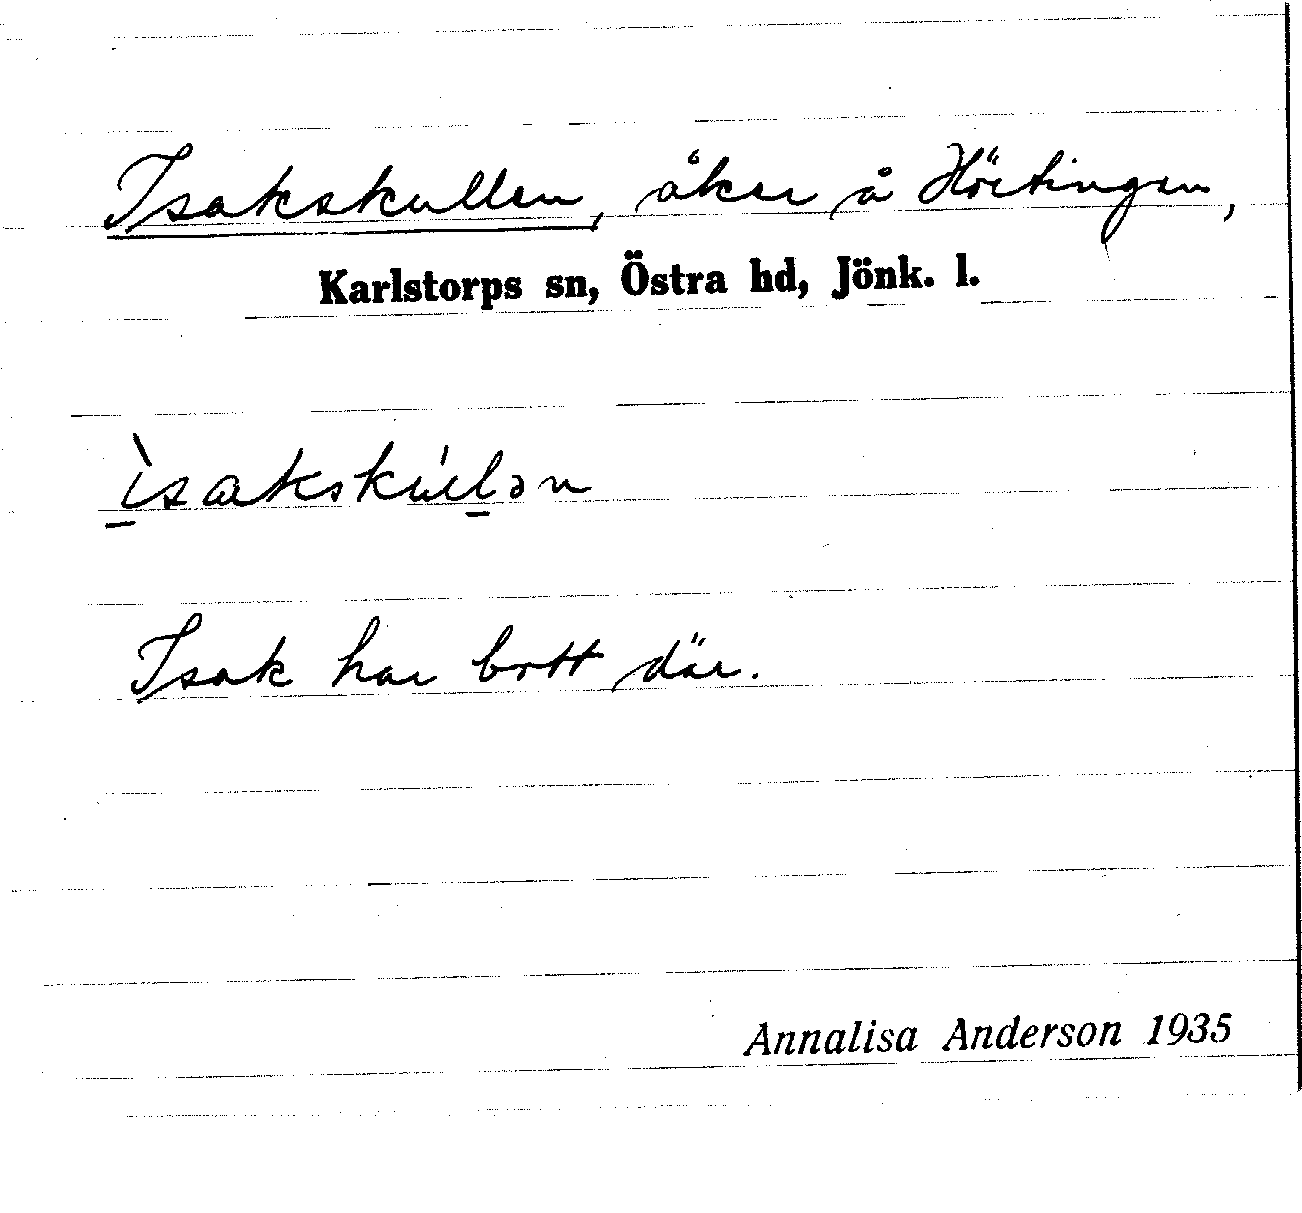 Isakskullen, åker å Hörtingen,
Karlstorps sn, Östra hd, Jönk. l.
ìsakskúlən
Isak har bott där.
Annalisa Anderson 1935